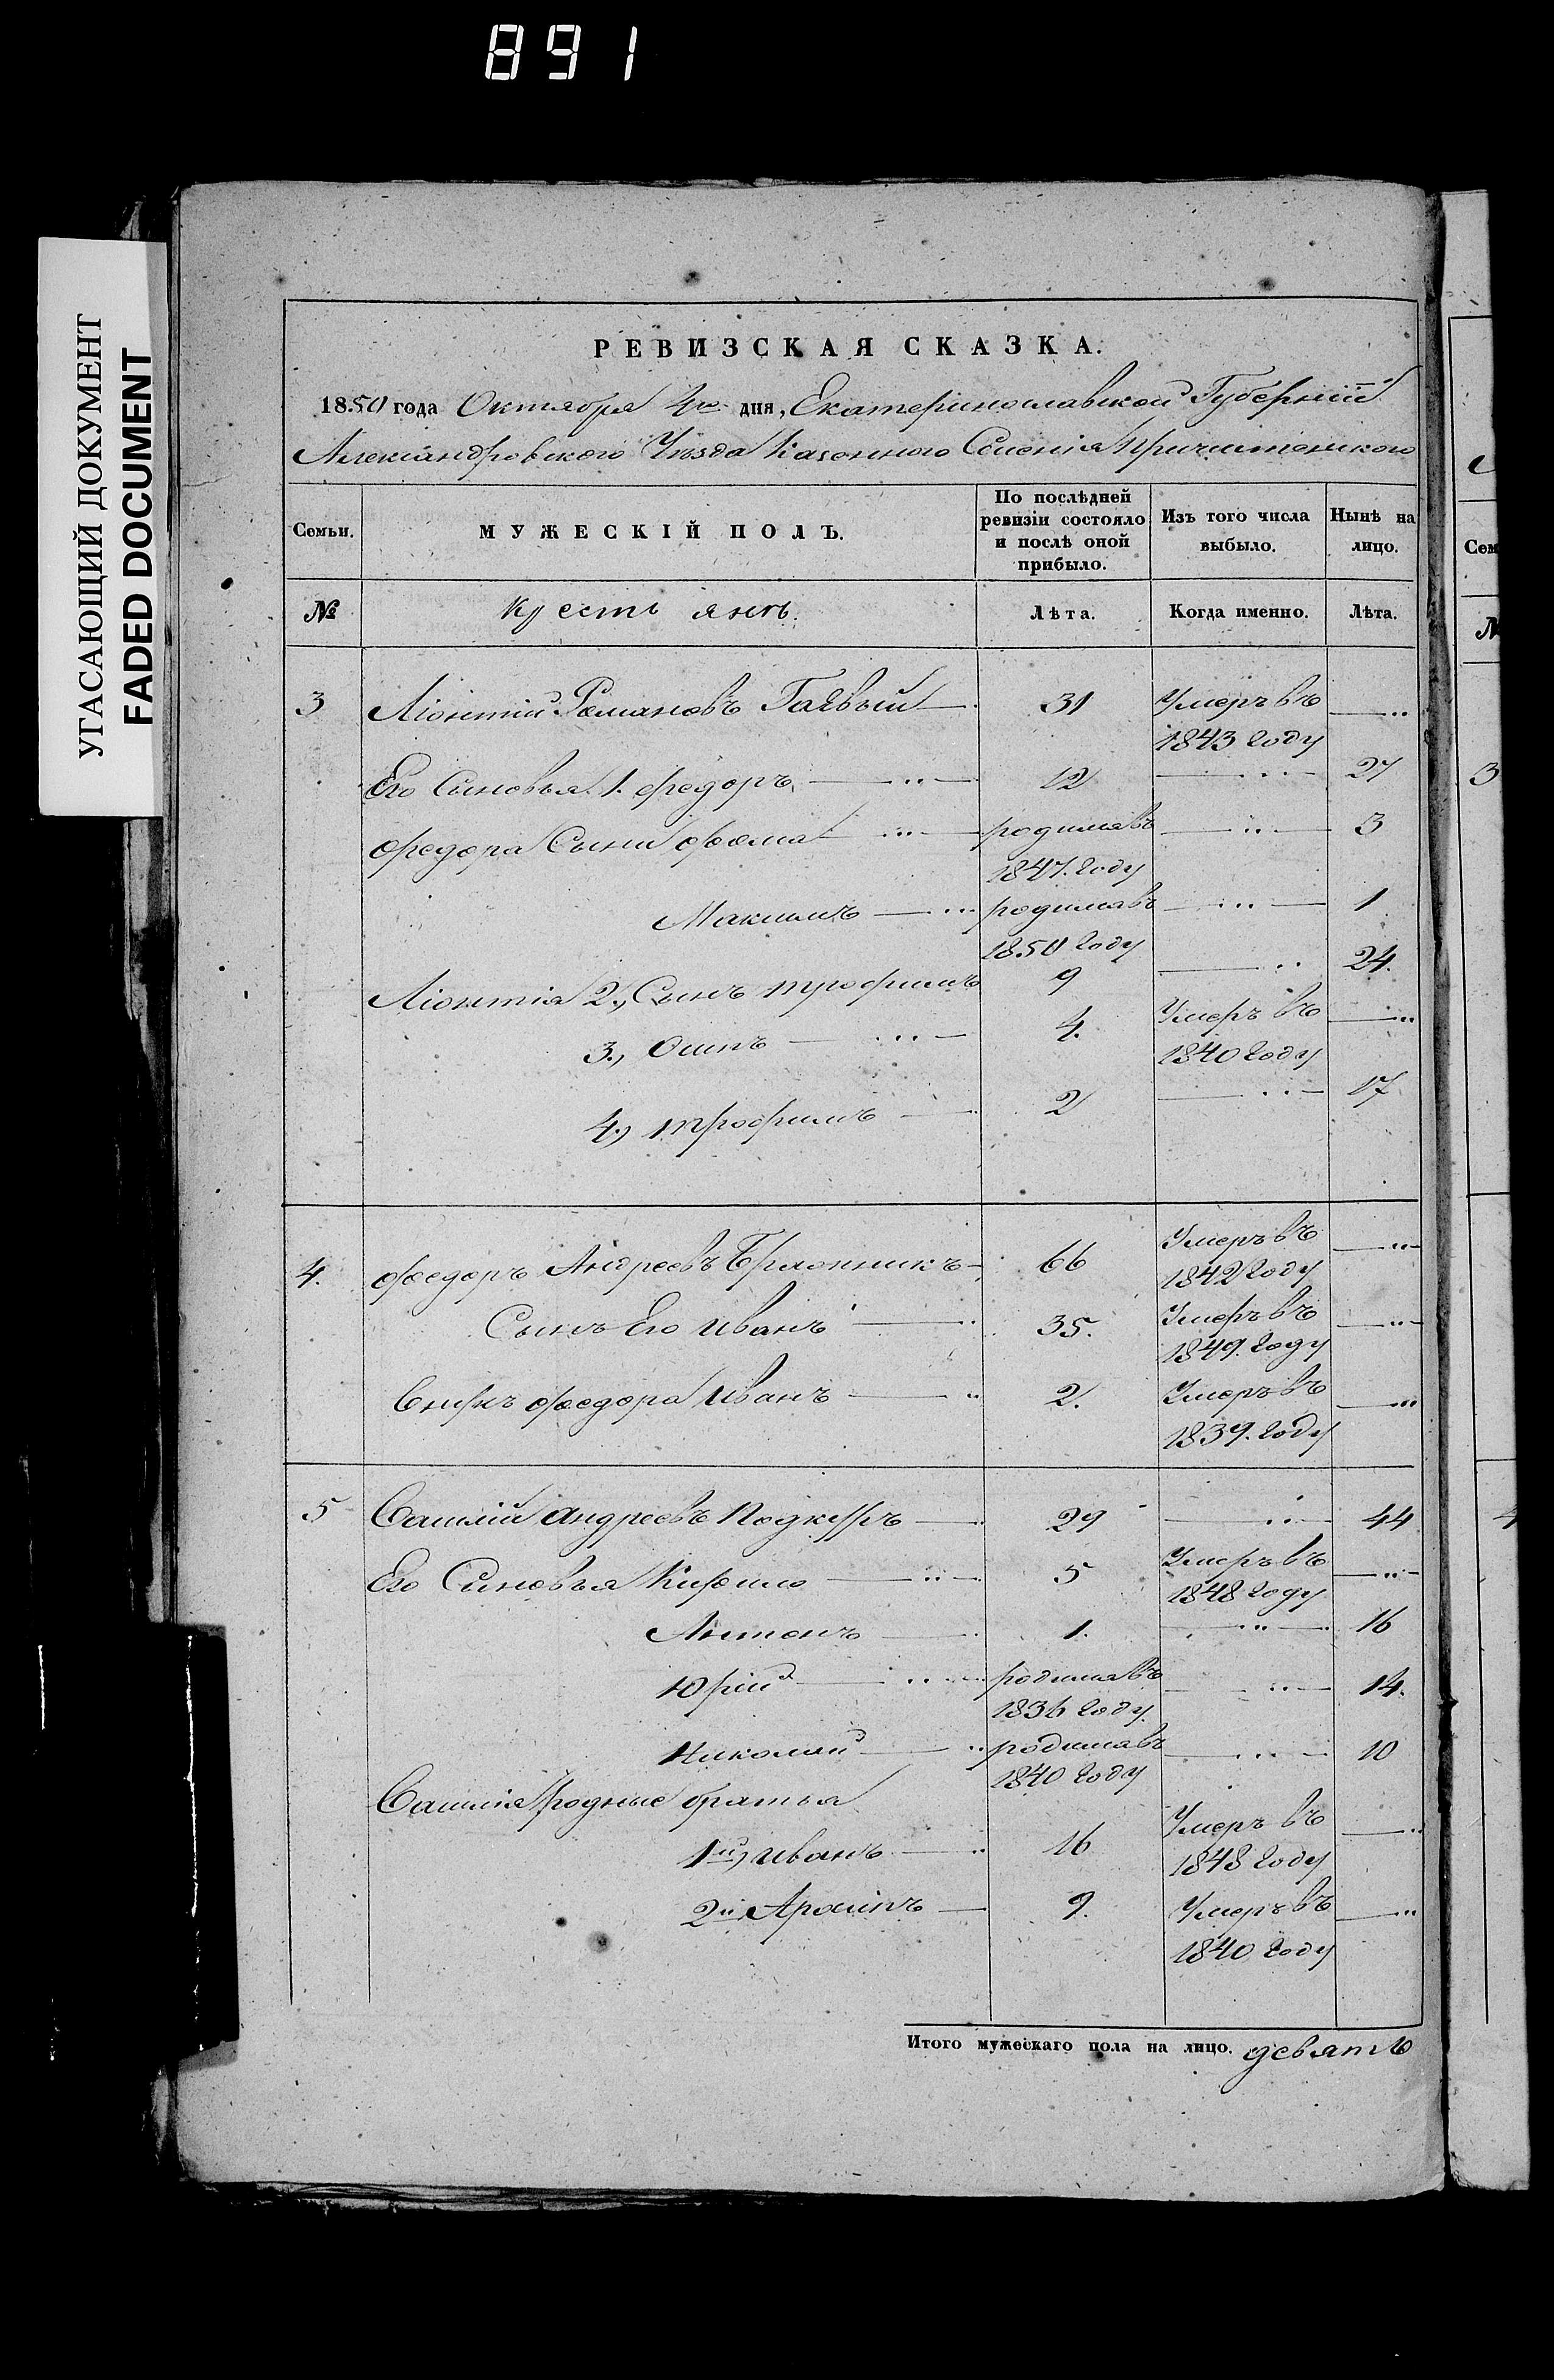 891
УГАСАЮЩИЙ ДОКУМЕНТ
FADED DOCUMENT
РЕВИЗСКАЯ СКАЗКА.
1850 года Октября 4го дня, Екатеринославской Губерніи
Александровского Уѣзда Казенного Селенія Пречистенского
Семьи.
МУЖЕСКІЙ ПОЛЪ.
По послѣдней ревизіи состояло и послѣ оной прибыло.
Изъ того числа выбыло.
Нынѣ на лицо.
№ Крестьянъ. Лѣта. Когда именно. Лѣта.
3 Ліонтій Романовъ 31 Умеръ въ
1843 году
Его Сыновья 1. Федоръ 12 27
Федора Сыны Фома родился въ 3
1847. году
Максимъ родился въ 1
1850 году
Ліонтія 2, Сынъ Трофимъ 9 24.
3, Осипъ 4. Умеръ въ
1840 году
4, Трофимъ 2 17
4. Федоръ Андреевъ 66 Умеръ въ
1842 году
Сынъ Его Иванъ 35. Умеръ въ
1849. году
Внукъ Федора Иванъ 2. Умеръ въ
1839. году
5 Василій Андреевъ 29 44
Его Синовья Кирило 5 Умеръ въ
1848 году
Антонъ 1. 16
Юрій родился въ 14.
1836 году
Николай родился въ 10
1840 году
Василія родные братья
1й, Иванъ 16 Умеръ въ
1848 году
2й 9. Умеръ въ
1840 году
Итого мужескаго пола на лицо. девять
Сем
№
3
4